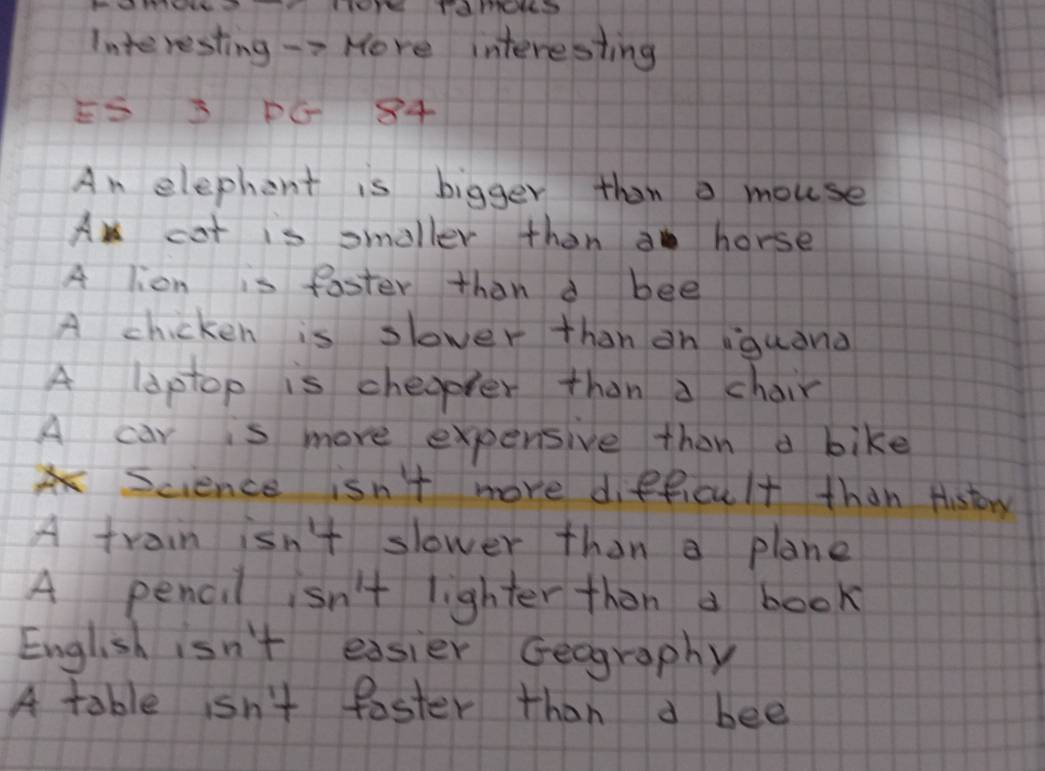 Famous -> More famous
Interesting -> More interesting
ES 3 PG 84
An elephant is bigger than a mouse
A cat is smaller than a horse
A lion is faster than a bee
A chicken is slower than an iguana
A laptop is cheaper than a chair
A car is more expensive than a bike
Science isn't more difficult than History
A train isn't slower than a plane
A pencil isn't lighter than a book
English isn't easier Geography
A table isn't faster than a bee